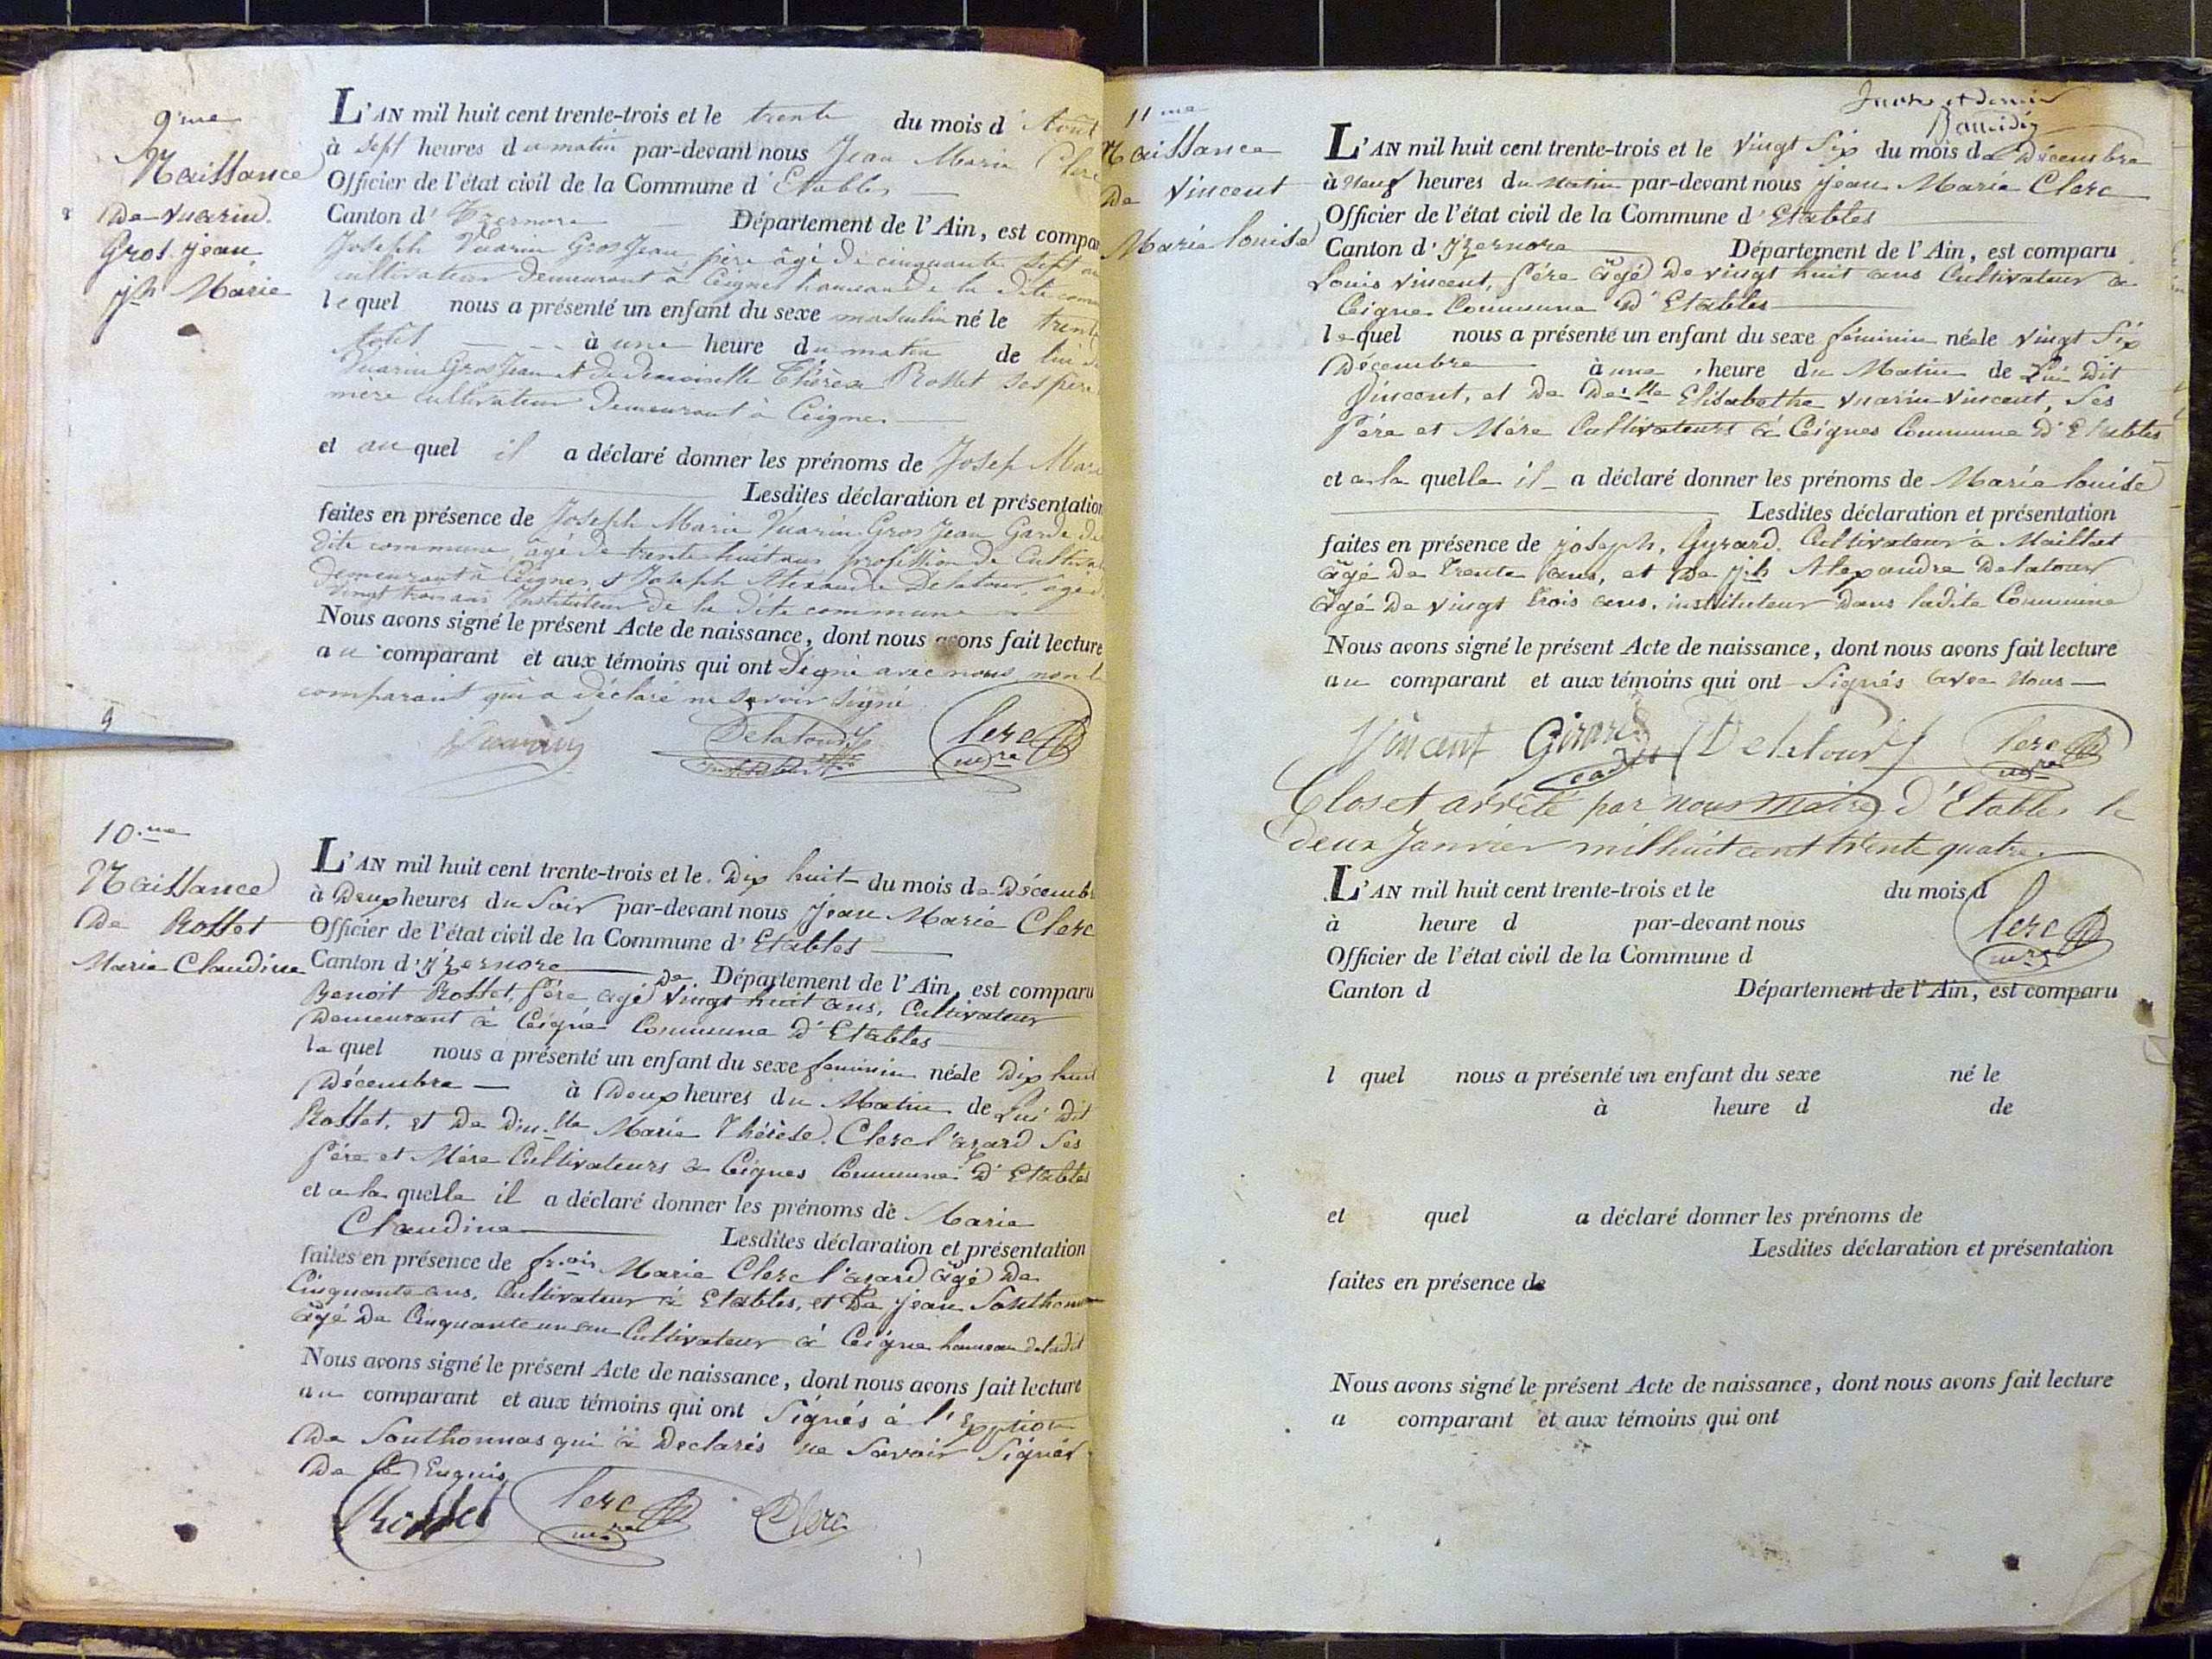 9me
Naissance
De Vuarin
Gros jean
jph Marie
L'AN mil huit cent trente-trois et le trente du mois d'Août
à sept heures du matin par-devant nous Jean Marie Clerc
Officier de l'état civil de la Commune d'Etables
Canton d'Izernore Département de l'Ain, est compar
Joseph Vuarin Gros Jean, père âgé de cinquante sept ans
cultivateur demeurant à Ceignes hameau de la dite comm
lequel nous a présenté un enfant du sexe masculin né le trente
Août à une heure du matin de lui dit
Vuarin Gros Jean et de demoiselle Thérèse Rosset ses père
mère cultivateur demeurant à Ceignes
et auquel il a déclaré donner les prénoms de Joseph Marie
Lesdites déclaration et présentation
faites en présence de Joseph Marie Vuarin Gros Jean Garde de
dite commune, âgé de trente huit ans profession de Cultivat
demeurant à Ceignes, & Joseph Alexandre Delatour, âgé d
vingt trois ans Instituteur de la dite commune
Nous avons signé le présent Acte de naissance, dont nous avons fait lecture
au comparant et aux témoins qui ont Signé avec nous non le
comparant qui a déclaré ne savoir signé
Vuarin Delatour Clerc
Instituteur mre
9
10.me
Naissance
De Rosset
Marie Claudine
L'AN mil huit cent trente-trois et le Dix huit du mois de Décembr
à Deux heures du Soir par-devant nous Jean Marie Clerc
Officier de l'état civil de la Commune d'Etables
Canton d'Izernore Département de l'Ain, est comparu
Benoit Rosset, Père âgé de Vingt huit ans, Cultivateur
Demeurant à Ceigne Commune D'Etables
lequel nous a présenté un enfant du sexe feminin née le Dix huit
Décembre à Deux heures du Matin de Lui Dit
Rosset, et De Dm.lle Marie Thérèse Clerc l'azard Ses
Père et Mère Cultivateurs à Ceignes Commune D'Etables
et a laquelle il a déclaré donner les prénoms de Marie
Claudine Lesdites déclaration et présentation
faites en présence de fr.ois Marie Clerc l'azard âgé De
Cinquante ans, Cultivateur à Etables, et De jean Southonn
âgé De Cinquante un an Cultivateur à Ceigne hameau de ladit
Nous avons signé le présent Acte de naissance, dont nous avons fait lecture
au comparant et aux témoins qui ont Signés à l'Exption
De Southonnas qui a Declarés ne Savoir Signér
De ce Enquis
Rosset Clerc mre Clerc
11me
Naissance
De Vincent
Marie louise
L'AN mil huit cent trente-trois et le Vingt Six du mois de Décembre
à Neuf heures du Matin par-devant nous Jean Marie Clerc
Officier de l'état civil de la Commune d'Etables
Canton d'Izernore Département de l'Ain, est comparu
Louis Vincent, Père âgé De vingt huit ans Cultivateur a
Ceigne Commune D'Etables
lequel nous a présenté un enfant du sexe féminin née le Vingt Six
Décembre à une heure du Matin de Lui Dit
Vincent, et De De.lle Elisabethe Vuarin Vincent, Ses
Père et Mère Cultivateurs à Ceignes Commune D'Etables
et a laquelle il a déclaré donner les prénoms de Marie louise
Lesdites déclaration et présentation
faites en présence de joseph, Gyrard. Cultivateur à Maillat
âgé De Trente ans, et De jph Alexandre Delatour
âgé De vingt trois ans, instituteur Dans ladite Commune
Nous avons signé le présent Acte de naissance, dont nous avons fait lecture
au comparant et aux témoins qui ont Signés avec Nous
Vincent Girard Delatour Clerc
mre
Clos et arrêté par nous Maire d'Etables le
deux Janvier mil huit cent trente quatre.
L'AN mil huit cent trente-trois et le du mois d
à heure d par-devant nous
Clerc
Officier de l'état civil de la Commune d
mre
Canton d Département de l'Ain, est comparu
l quel nous a présenté un enfant du sexe né le
à heure d de
et quel a déclaré donner les prénoms de
Lesdites déclaration et présentation
faites en présence de
Nous avons signé le présent Acte de naissance, dont nous avons fait lecture
a comparant et aux témoins qui ont